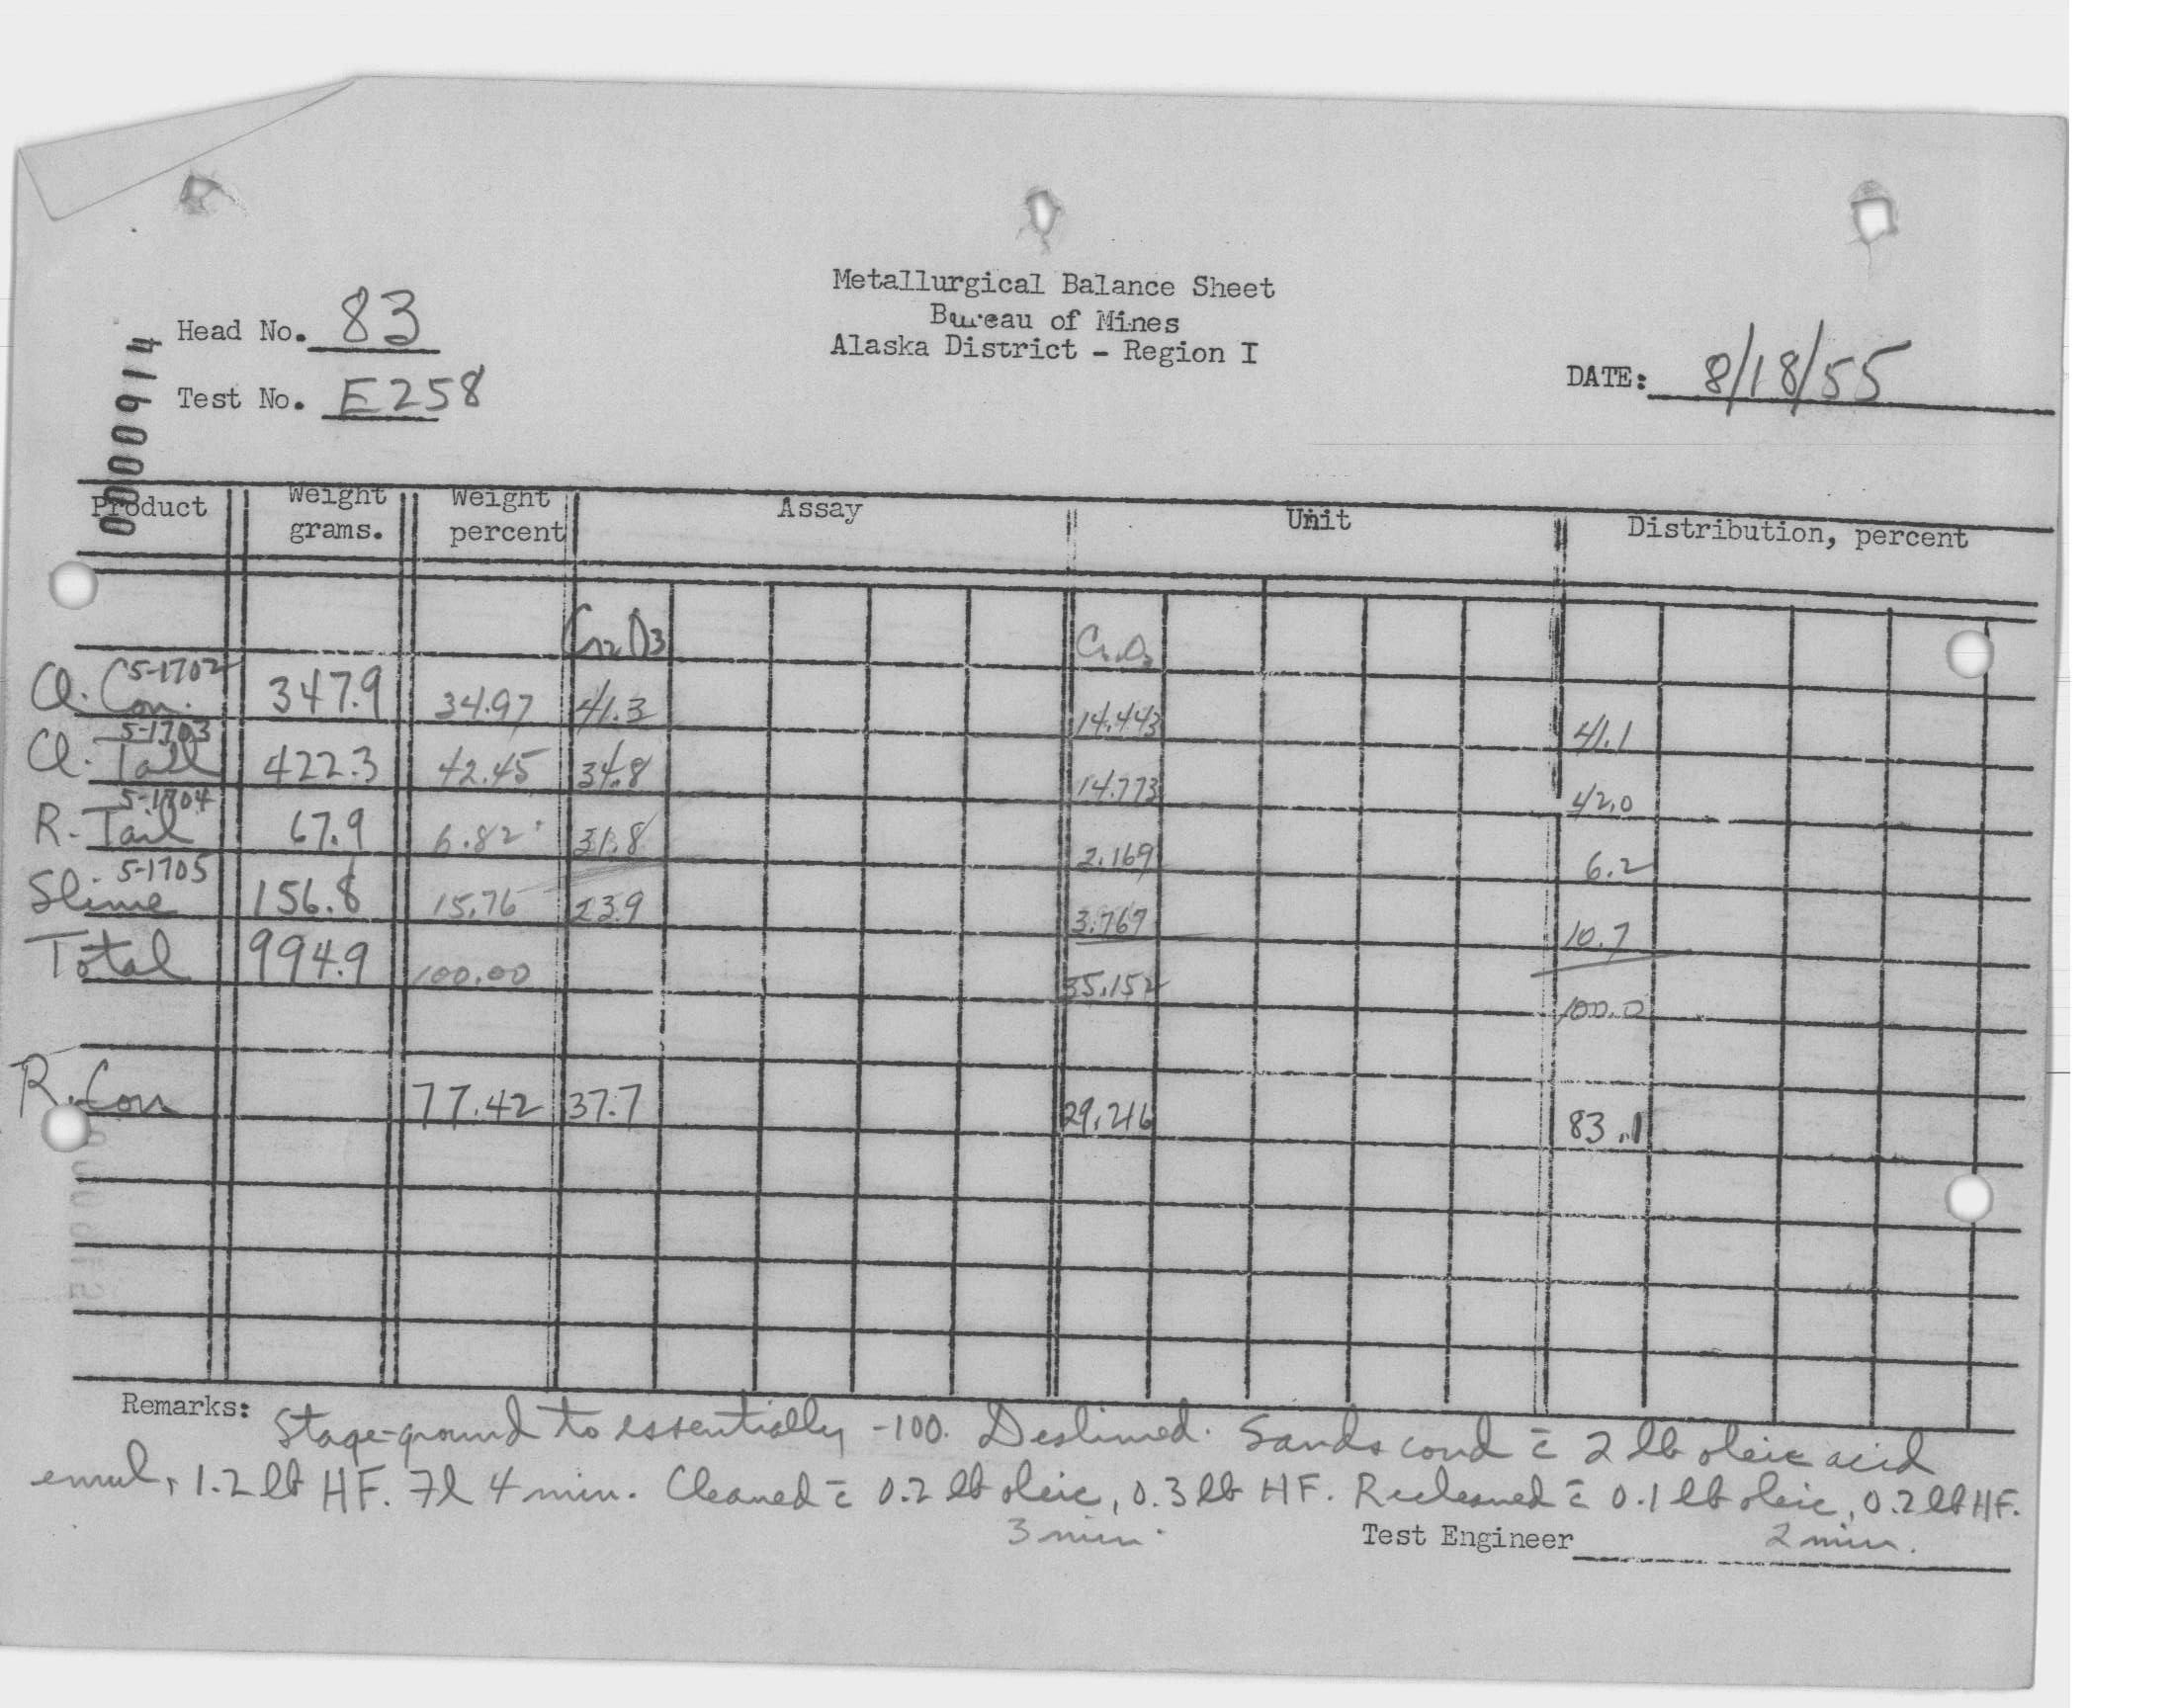 Metallurgical Balance Sheet
Bureau of Mines
Alaska District - Region I
Head No. 83
Test No. E258
DATE: 8/18/55
0000914
Product Weight grams. Weight percent Assay Unit Distribution, percent
Cr2O3 Cr2O3
5-1702
Cl. Con. 347.9 34.97 41.3 14.443 41.1
5-1703
Cl. Tail 422.3 42.45 34.8 14.773 42.0
5-1704
R. Tail 67.9 6.82 31.8 2.169 6.2
5-1705
Slime 156.8 15.76 23.9 3.767 10.7
Total 994.9 100.00 35.152 100.0
R. Con 77.42 37.7 29.216 83.1
Remarks: Stage-ground to essentially -100. Deslimed. Sands cond c̄ 2 lb oleic acid
emul, 1.2 lb HF. Fl 4 min. Cleaned c̄ 0.2 lb oleic, 0.3 lb HF. Recleaned c̄ 0.1 lb oleic, 0.2 lb HF.
3 min. 2 min.
Test Engineer